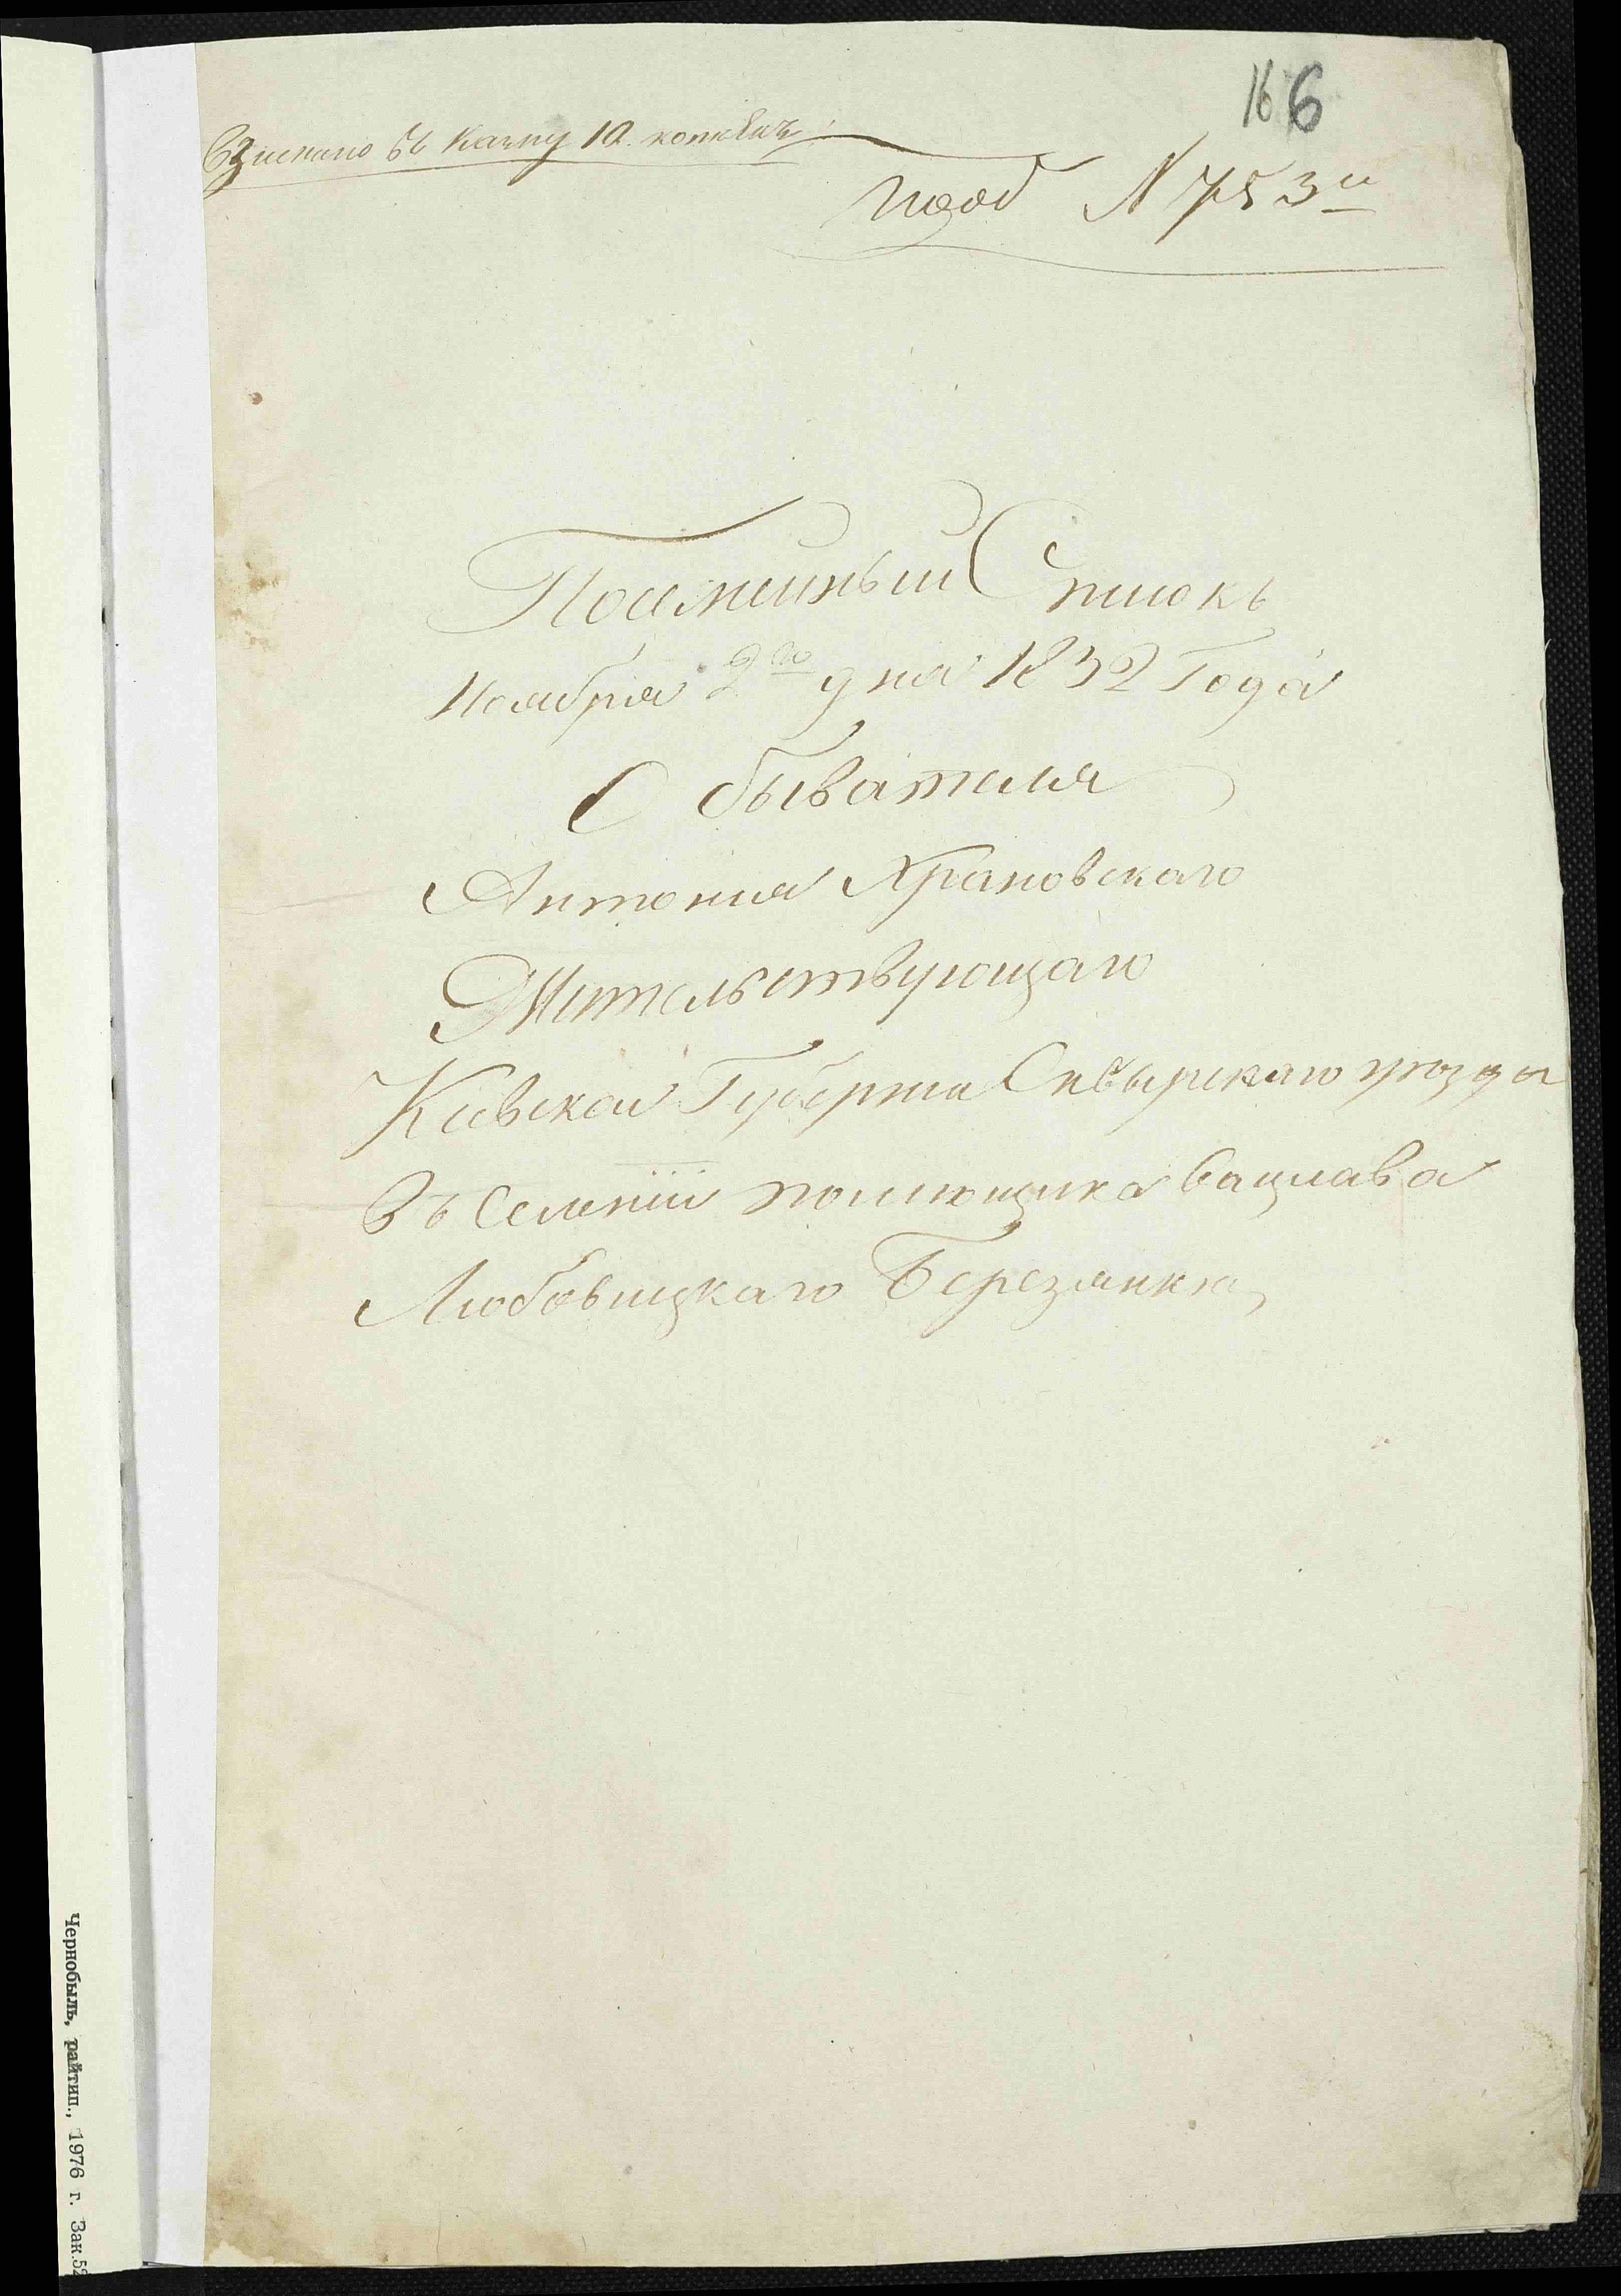 166
Взискано въ Казну 10. копѣекъ
подъ N 753 м
Посемейный Списокъ
Ноября 2го дня 1832 Года
Обывателя
Антонія Храновскаго
Жительствующаго
Киевской Губерніи Сквырскаго уезда
Въ Селеніи помещика Вацлава
Любовицкаго Березянке
Чернобыль, райтип., 1976 г. Зак.52